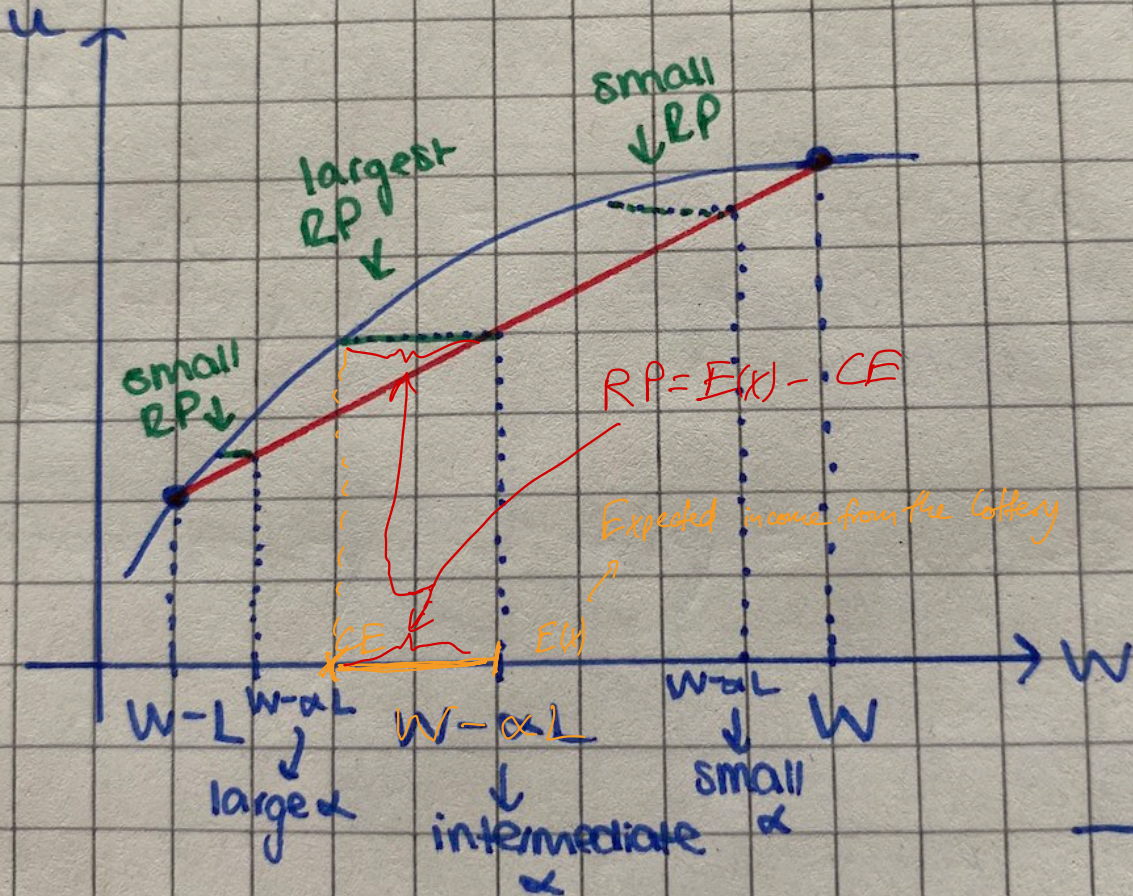 u
small
RP
largest
RP
small
RP
RP = E(x) - CE
Expected income from the lottery
CE
E(x)
W
W-L
W-αL
W-αL
W-αL
W
large α
intermediate
α
small
α